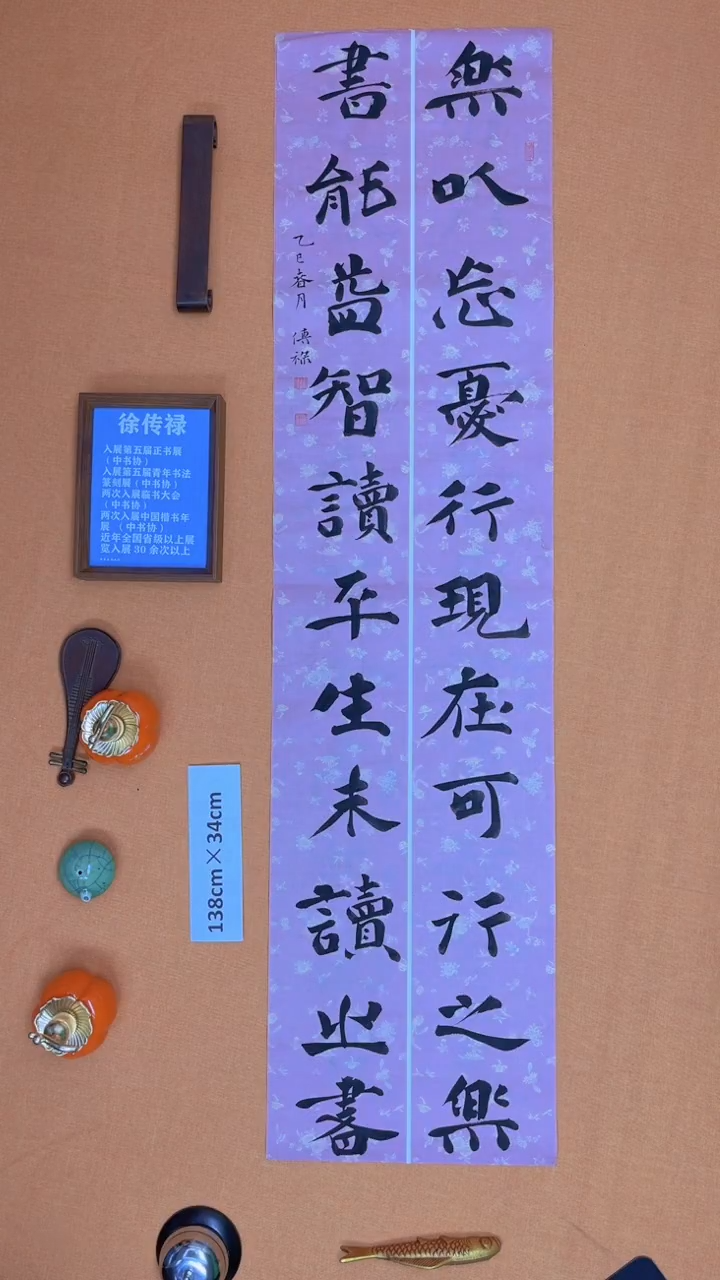 樂以忘憂行現在可行之樂
書能益智讀平生未讀之書
乙巳春月 傳祿
徐传禄
入展第五届正书展
（中书协）
入展第五届青年书法
篆刻展（中书协）
两次入展临书大会
（中书协）
两次入展中国楷书年
展（中书协）
近年全国省级以上展
览入展 30 余次以上
138cm×34cm